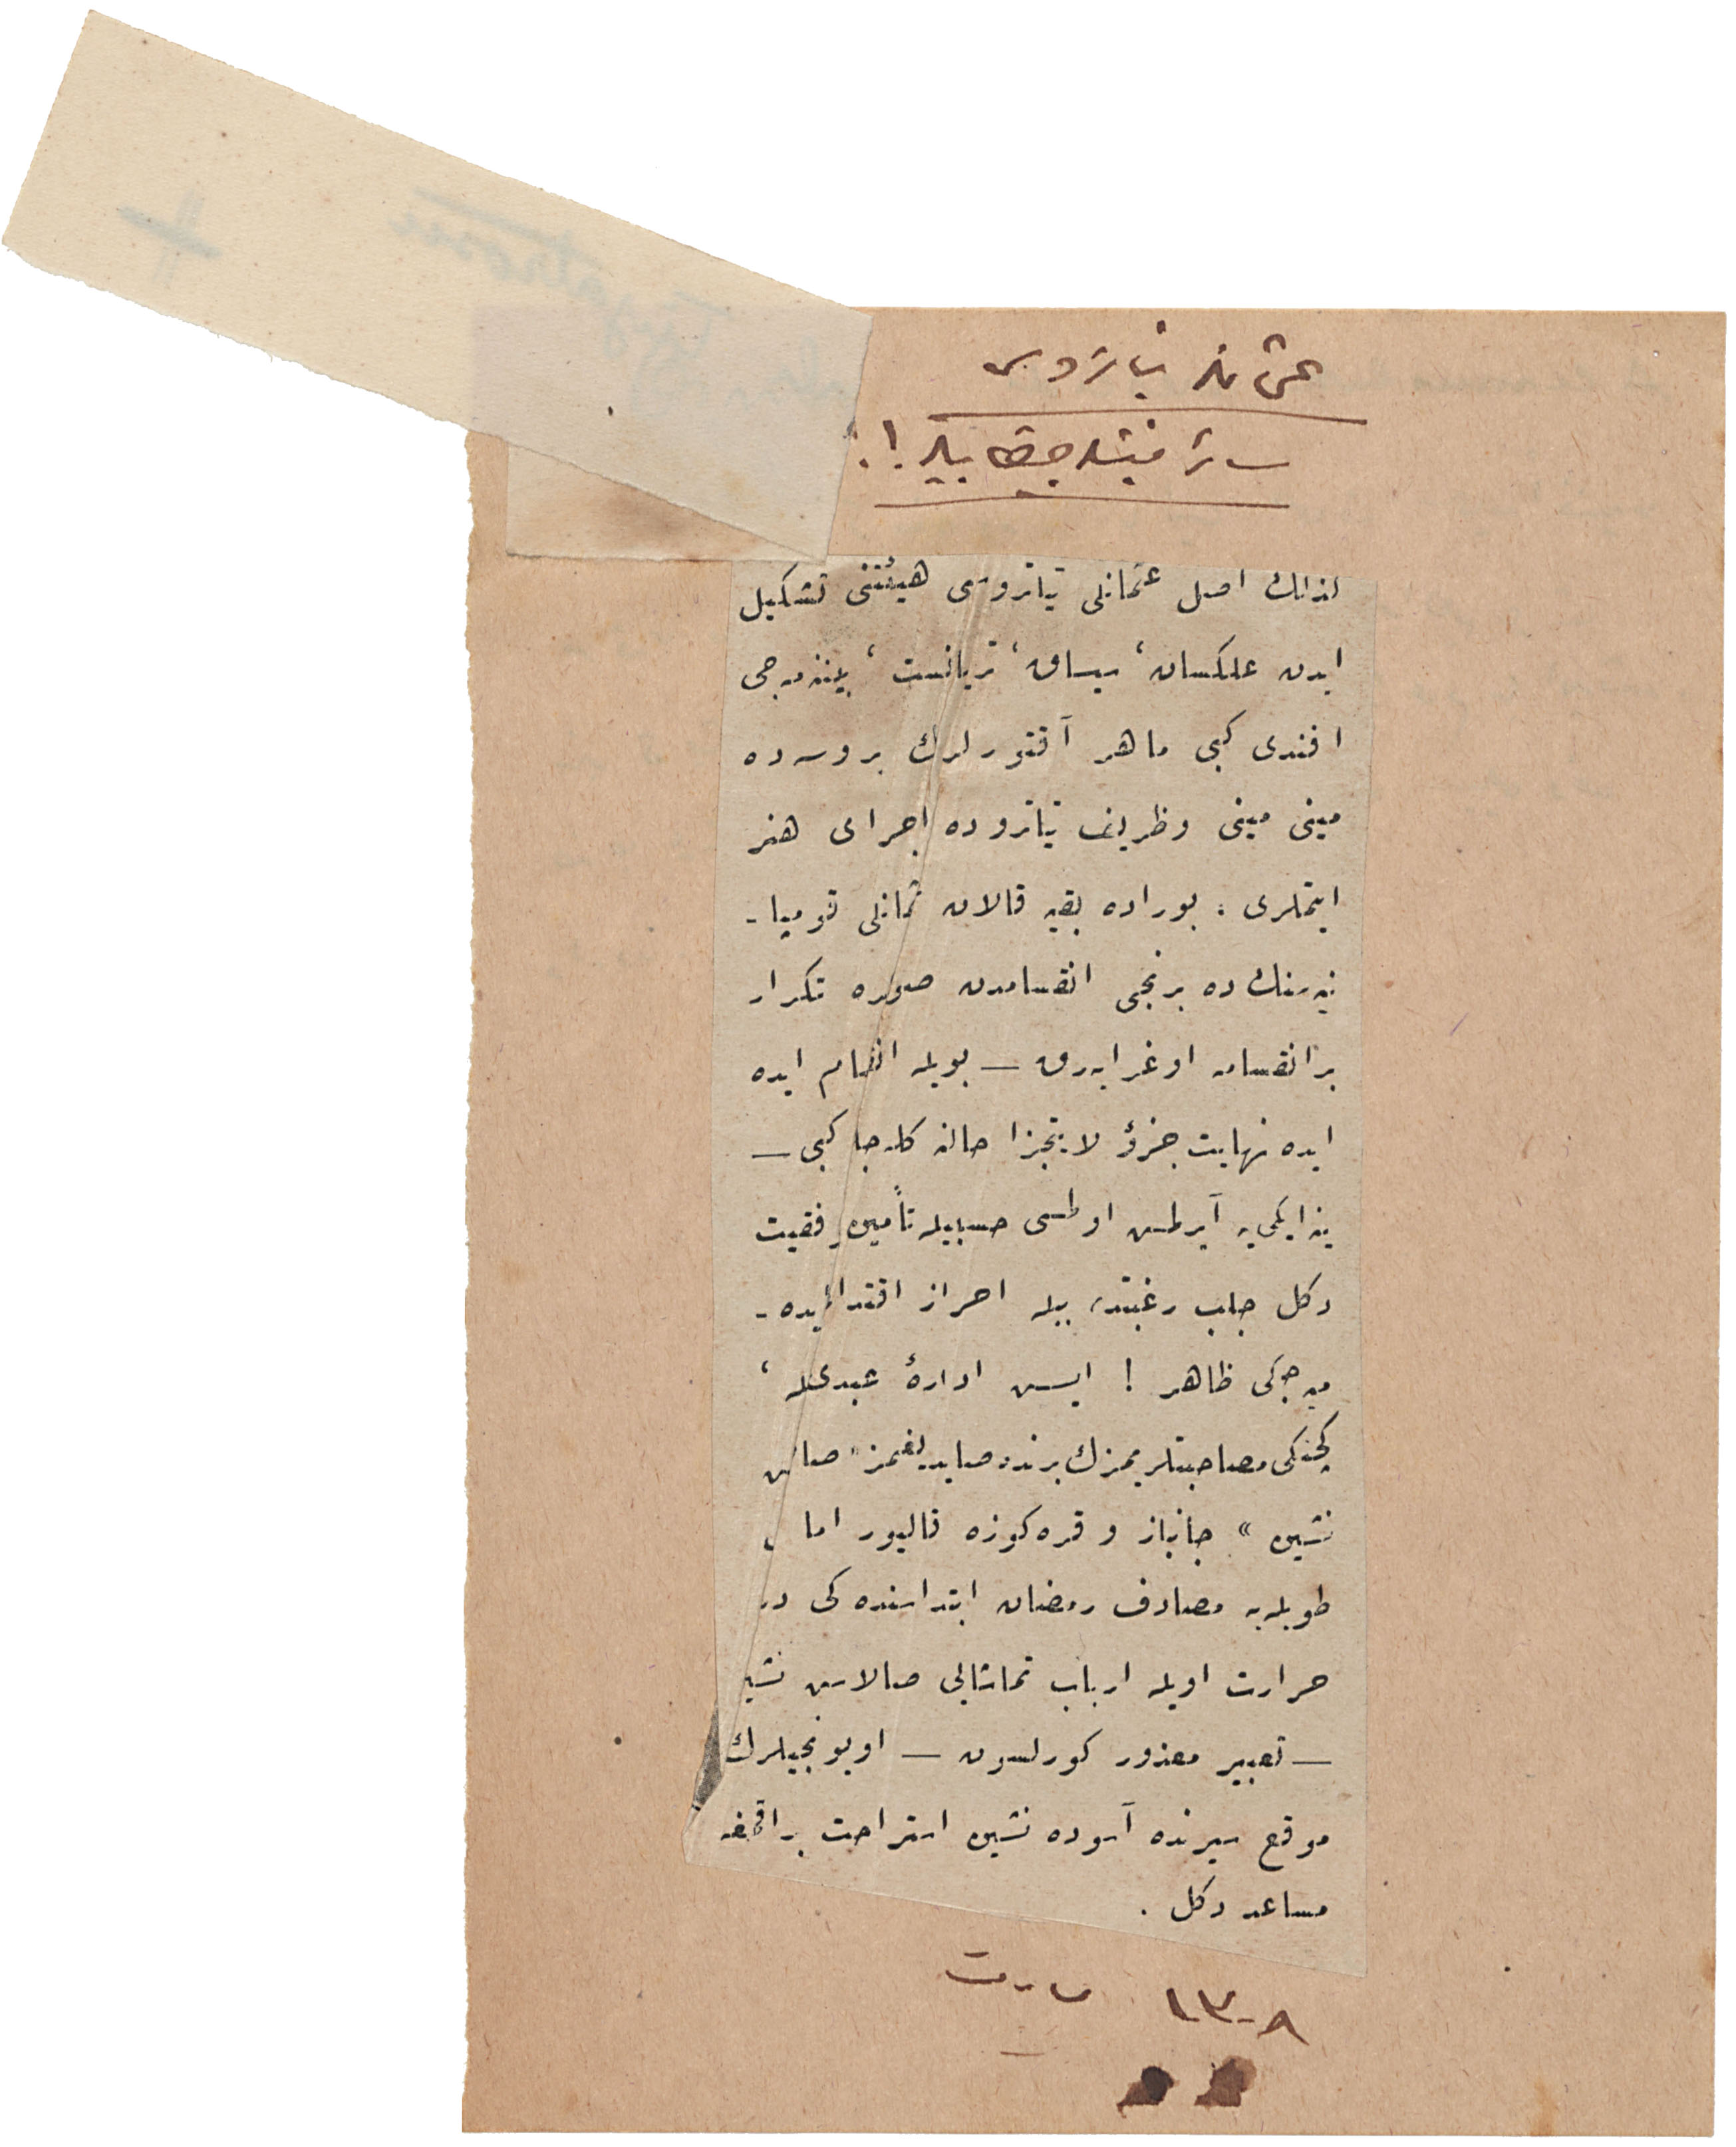 عثمانلی تیاتروسی
لذلك اصل عثمانلی تیاتروسی هیئتنی تشكیل
ایدن علكسان، بیساق، تریانست، بیننه مه جی
افندی كبی ماهر آقتورلرك بروسه ده
مینی مینی وظریف تیاتروده اجرای هنر
ایتملری . بوراده بقیه قالان عثمانلی قومپا-
نیه سنك ده برنجی انقسامدن صوكره تكرار
بر انقسامه اوغرایه رق — بویله انقسام ایده
ایده نهایت جزؤ لایتجزا حالنه كله جك كبی —
ینه ایكی یه آیرلمش اولمسی حسبیله تأمین موفقیت
دكل جلب رغبتده بیله احراز اقتدار ایده-
میه جكی ظاهر ! ایش ادارۀ عبدی ایله ،
كچنكی مصاحبتلریمزك برنده صایدیغمز «صالاش
نشین» جانباز و قره كوزه قالیور اما
طویله یه مصادف رمضان ابتداسنده كی در
حرارت اویله ارباب تماشایی صالاش نشین
— تعبیر معذور كورلسون — اویونجیلرك
موقع سیرنده آسوده نشین استراحت براقمغه
مساعد دكل .
١٣٠٨ مارت